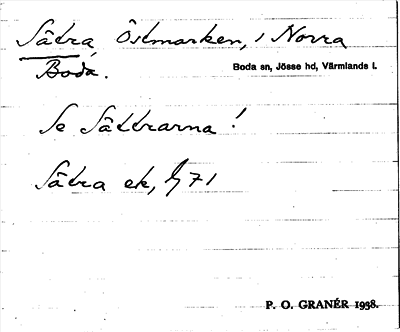 Sätra, Östmarken, i Norra
Boda.
Boda sn, Jösse hd, Värmlands l.
Se Sättrarna!
Sätra ek, 71
P. O. GRANÉR 1938.